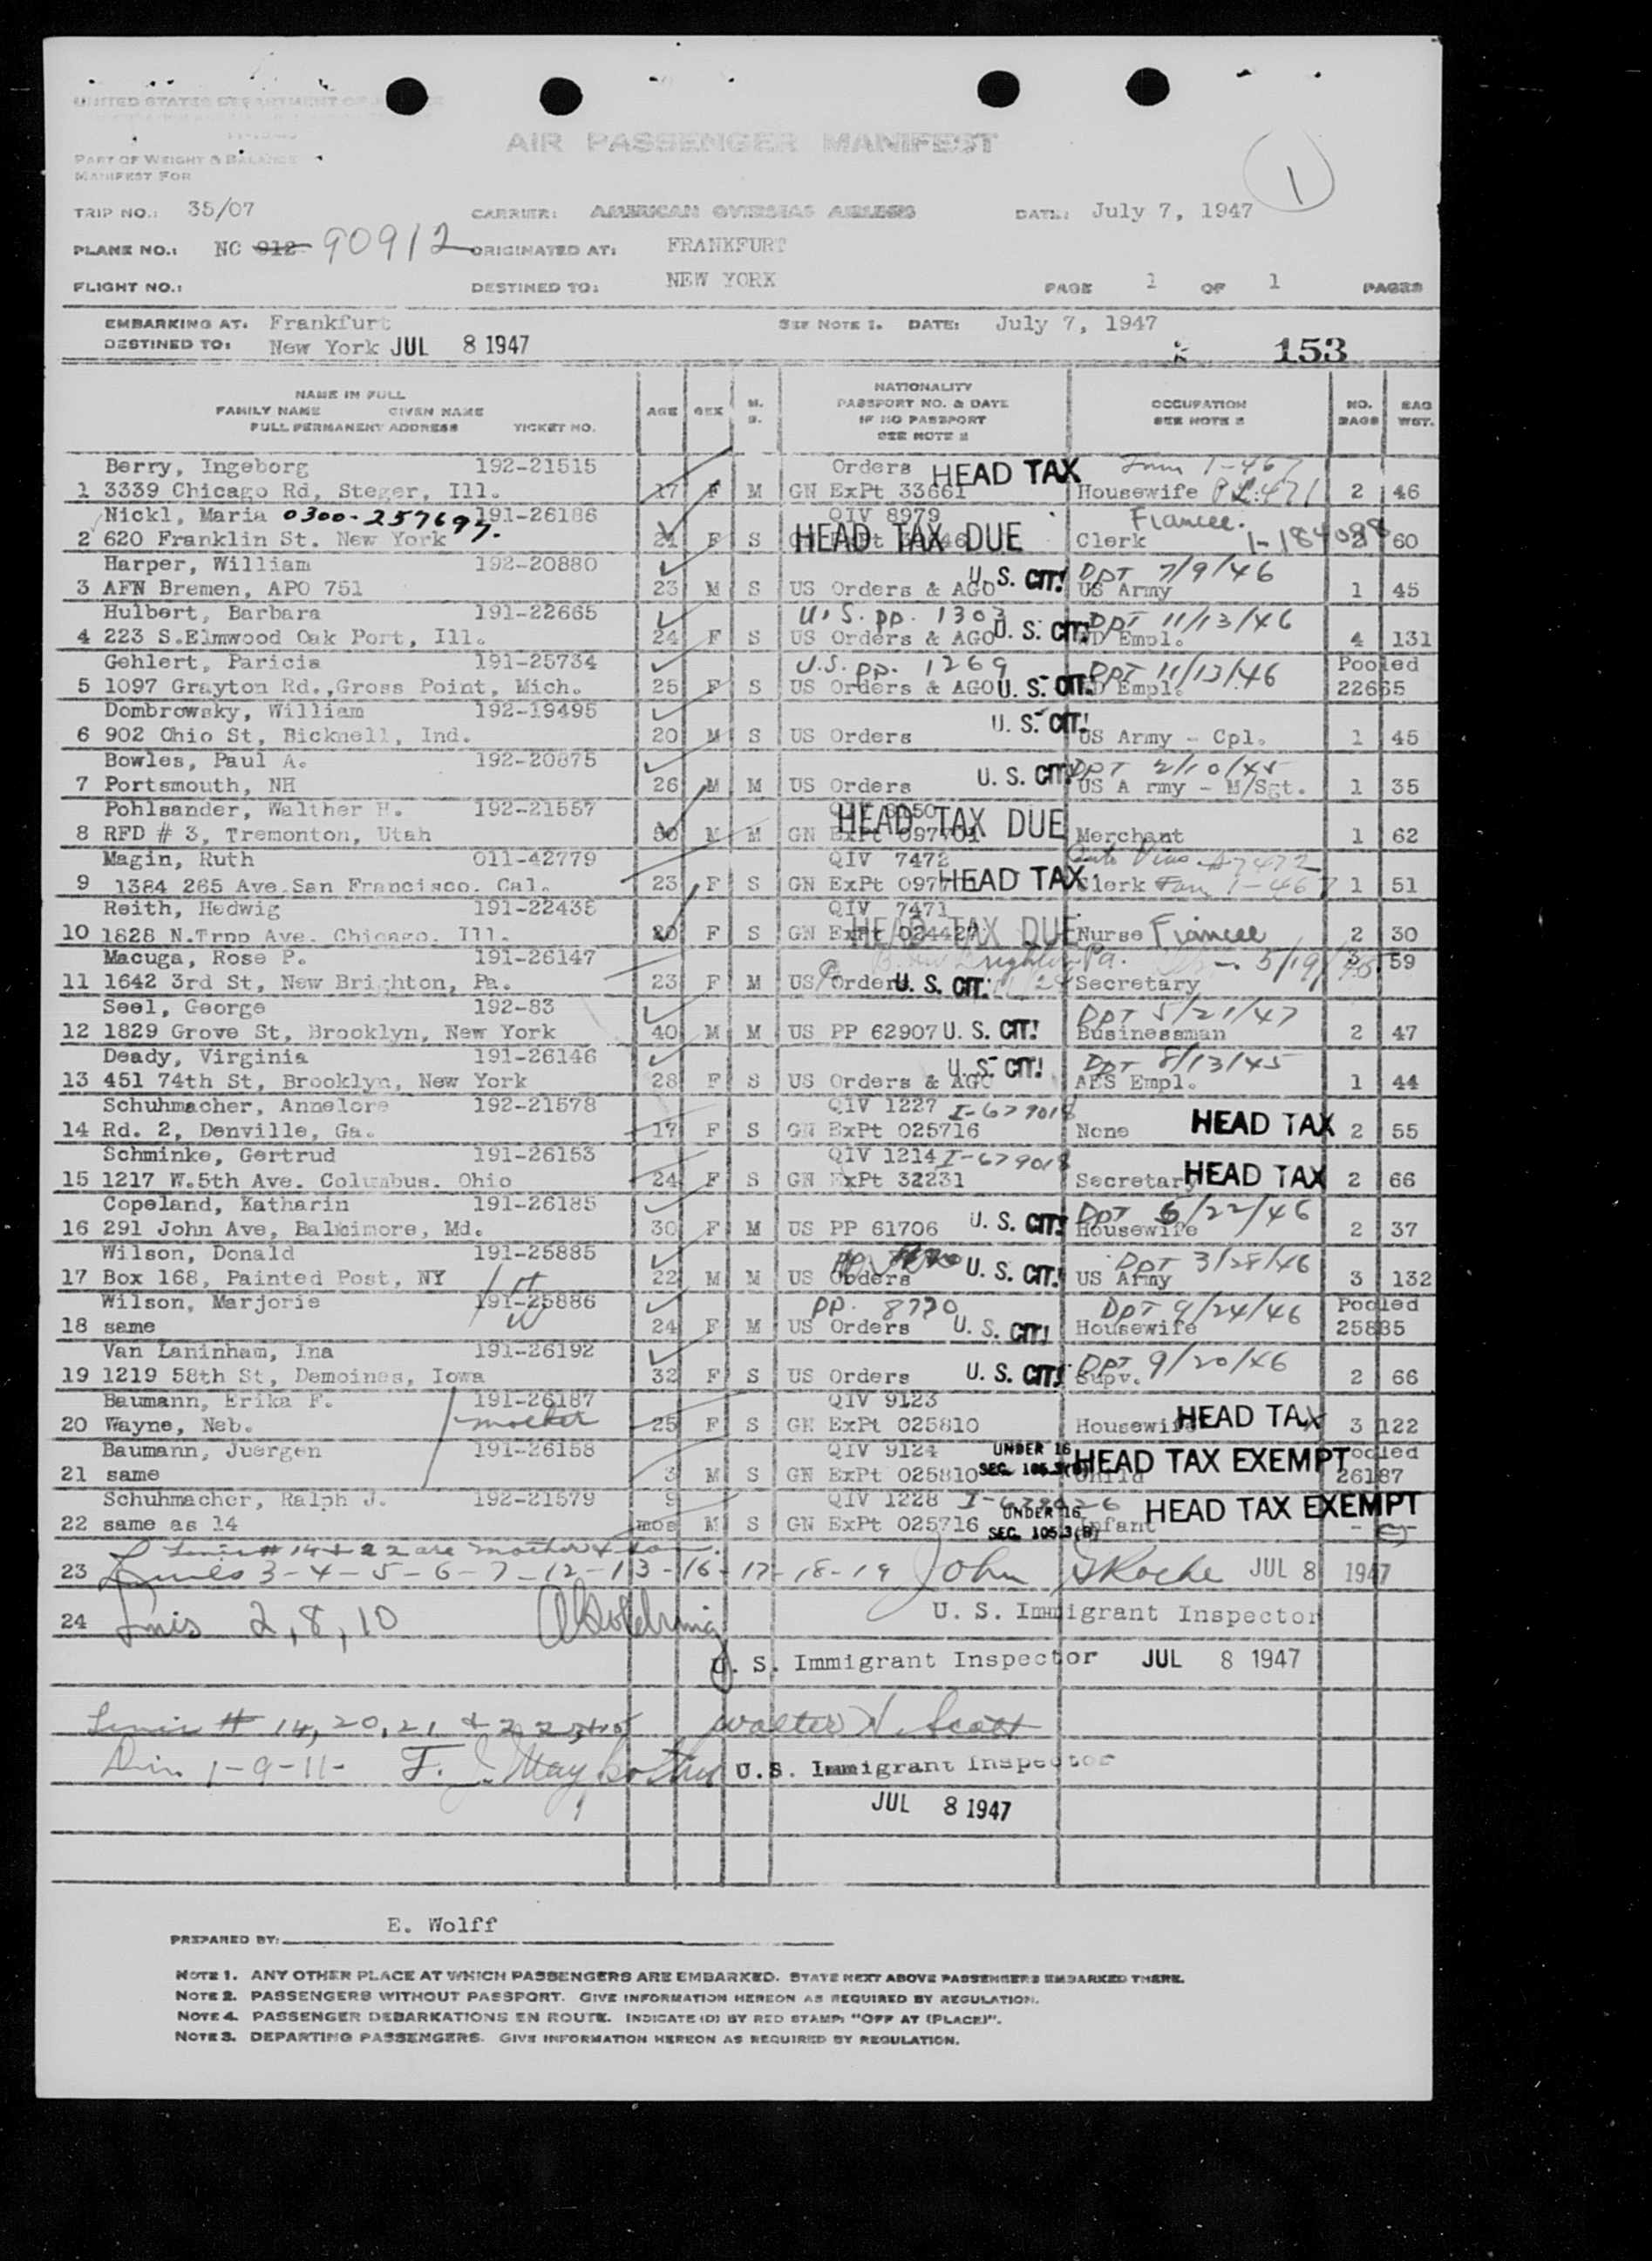 UNITED STATES DEPARTMENT OF
AIR PASSENGER MANIFEST
PART OF WEIGHT & BALANCE
MANIFEST FOR
1
TRIP NO.: 35/07 CARRIER: AMERICAN OVERSEAS AIRLINES DATE: July 7, 1947
PLANE NO.: NC 912 90912 ORIGINATED AT: FRANKFURT
FLIGHT NO.: DESTINED TO: NEW YORK PAGE 1 OF 1 PAGES
EMBARKING AT. Frankfurt SEE NOTE 1. DATE: July 7, 1947
DESTINED TO: New York JUL 8 1947 153
NAME IN FULL
FAMILY NAME GIVEN NAME
FULL PERMANENT ADDRESS TICKET NO. AGE SEX M. S. NATIONALITY PASSPORT NO. & DATE IF NO PASSPORT SEE NOTE 2 OCCUPATION SEE NOTE 2 NO. BAGS BAG WGT.
Berry, Ingeborg 192-21515 Orders HEAD TAX
1 3339 Chicago Rd, Steger, Ill. 17 F M GN ExPt 33661 Housewife P.L. 471 2 46
Nickl, Maria 0300-257697. 191-26186 QIV 8979 Fiancee.
2 620 Franklin St. New York F S HEAD TAX DUE Clerk 60
Harper, William 192-20880 U. S. CIT! DPT 7/9/46
3 AFN Bremen, APO 751 23 M S US Orders & AGO US Army 1 45
Hulbert, Barbara 191-22665 U.S. pp. 1303 U. S. CIT! DPT 11/13/46
4 223 S.Elmwood Oak Port, Ill. 24 F S US Orders & AGO Empl. 4 131
Gehlert, Paricia 191-25734 U.S. pp. 1269 DPT 11/13/46 Pooled
5 1097 Grayton Rd.,Gross Point, Mich. 25 F S US Orders & AGO U. S. CIT. Empl. 22665
Dombrowsky, William 192-19495 U. S. CIT!
6 902 Ohio St, Bicknell, Ind. 20 M S US Orders US Army - Cpl. 1 45
Bowles, Paul A. 192-20875 U. S. CIT! DPT 2/10/45
7 Portsmouth, NH 26 M M US Orders US A rmy - M/Sgt. 1 35
Pohlsander, Walther H. 192-21557 HEAD TAX DUE
8 RFD # 3, Tremonton, Utah M M GN ExPt 097701 Merchant 1 62
Magin, Ruth 011-42779 QIV 7472
9 1384 265 Ave.San Francisco. Cal. 23 F S GN ExPt HEAD TAX Clerk 1 51
Reith, Hedwig 191-22435 QIV 7471
10 1828 N.Tropp Ave. Chicago. Ill. F S GN ExPt HEAD TAX DUE Nurse Fiancee 2 30
Macuga, Rose P. 191-26147 Pa. 59
11 1642 3rd St, New Brighton, Pa. 23 F M US Orders U. S. CIT. Secretary
Seel, George 192-83 DPT 5/21/47
12 1829 Grove St, Brooklyn, New York 40 M M US PP 62907 U. S. CIT! Businessman 2 47
Deady, Virginia 191-26146 U. S. CIT! DPT 8/13/45
13 451 74th St, Brooklyn, New York 28 F S US Orders & AGO AES Empl. 1 44
Schuhmacher, Annelore 192-21578 QIV 1227 I-679018
14 Rd. 2, Denville, Ga. 17 F S GN ExPt 025716 None HEAD TAX 2 55
Schminke, Gertrud 191-26153 QIV 1214 I-679018
15 1217 W.5th Ave. Columbus. Ohio 24 F S GN ExPt 32231 Secretary HEAD TAX 2 66
Copeland, Katharin 191-26185 DPT 5/22/46
16 291 John Ave, Baltimore, Md. 30 F M US PP 61706 U. S. CIT! Housewife 2 37
Wilson, Donald 191-25885 DPT 3/28/46
17 Box 168, Painted Post, NY 22 M M US Orders U. S. CIT! US Army 3 132
Wilson, Marjorie 191-25886 pp. 8770 DPT 9/24/46 Pooled
18 same 24 F M US Orders U. S. CIT! Housewife 25885
Van Laninham, Ina 191-26192 DPT 9/20/46
19 1219 58th St, Demoines, Iowa 32 F S US Orders U. S. CIT! Supv. 2 66
Baumann, Erika F. 191-26187 QIV 9123
20 Wayne, Neb. mother 25 F S GN ExPt 025810 Housewife HEAD TAX 3 122
Baumann, Juergen 191-26158 QIV 9124 UNDER 16 HEAD TAX EXEMPT Pooled
21 same 3 M S GN ExPt 025810 SEC. 105.3(B) Child 26187
Schuhmacher, Ralph J. 192-21579 9 QIV 1228 HEAD TAX EXEMPT
22 same as 14 mos M S GN ExPt 025716 UNDER 16 SEC. 105.3(B) Infant
Lines # 14 & 22 are mother & son.
23 Lines 3-4-5-6-7-12-13-16-17-18-19 John Roche JUL 8 1947
U. S. Immigrant Inspector
24 Lines 2, 8, 10
U. S. Immigrant Inspector JUL 8 1947
Lines # 14, 20, 21 & 22 Walter N. Scott
Lin 1-9-11- F. J. U.S. Immigrant Inspector
JUL 8 1947
PREPARED BY: E. Wolff
NOTE 1. ANY OTHER PLACE AT WHICH PASSENGERS ARE EMBARKED. STATE NEXT ABOVE PASSENGERS EMBARKED THERE.
NOTE 2. PASSENGERS WITHOUT PASSPORT. GIVE INFORMATION HEREON AS REQUIRED BY REGULATION.
NOTE 4. PASSENGER DEBARKATIONS EN ROUTE. INDICATE (D) BY RED STAMP: "OFF AT (PLACE)".
NOTE 3. DEPARTING PASSENGERS. GIVE INFORMATION HEREON AS REQUIRED BY REGULATION.